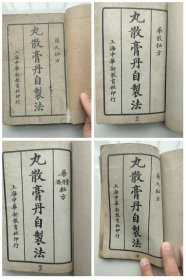 藥丸秘方
丸散膏丹自製法
上海中華新教育社印行
藥散秘方
丸散膏丹自製法
上海中華新教育社印行
秘方
丸散膏丹自製法
上海中華新教育社印行
秘方
丸散膏丹自製法
上海中華新教育社印行